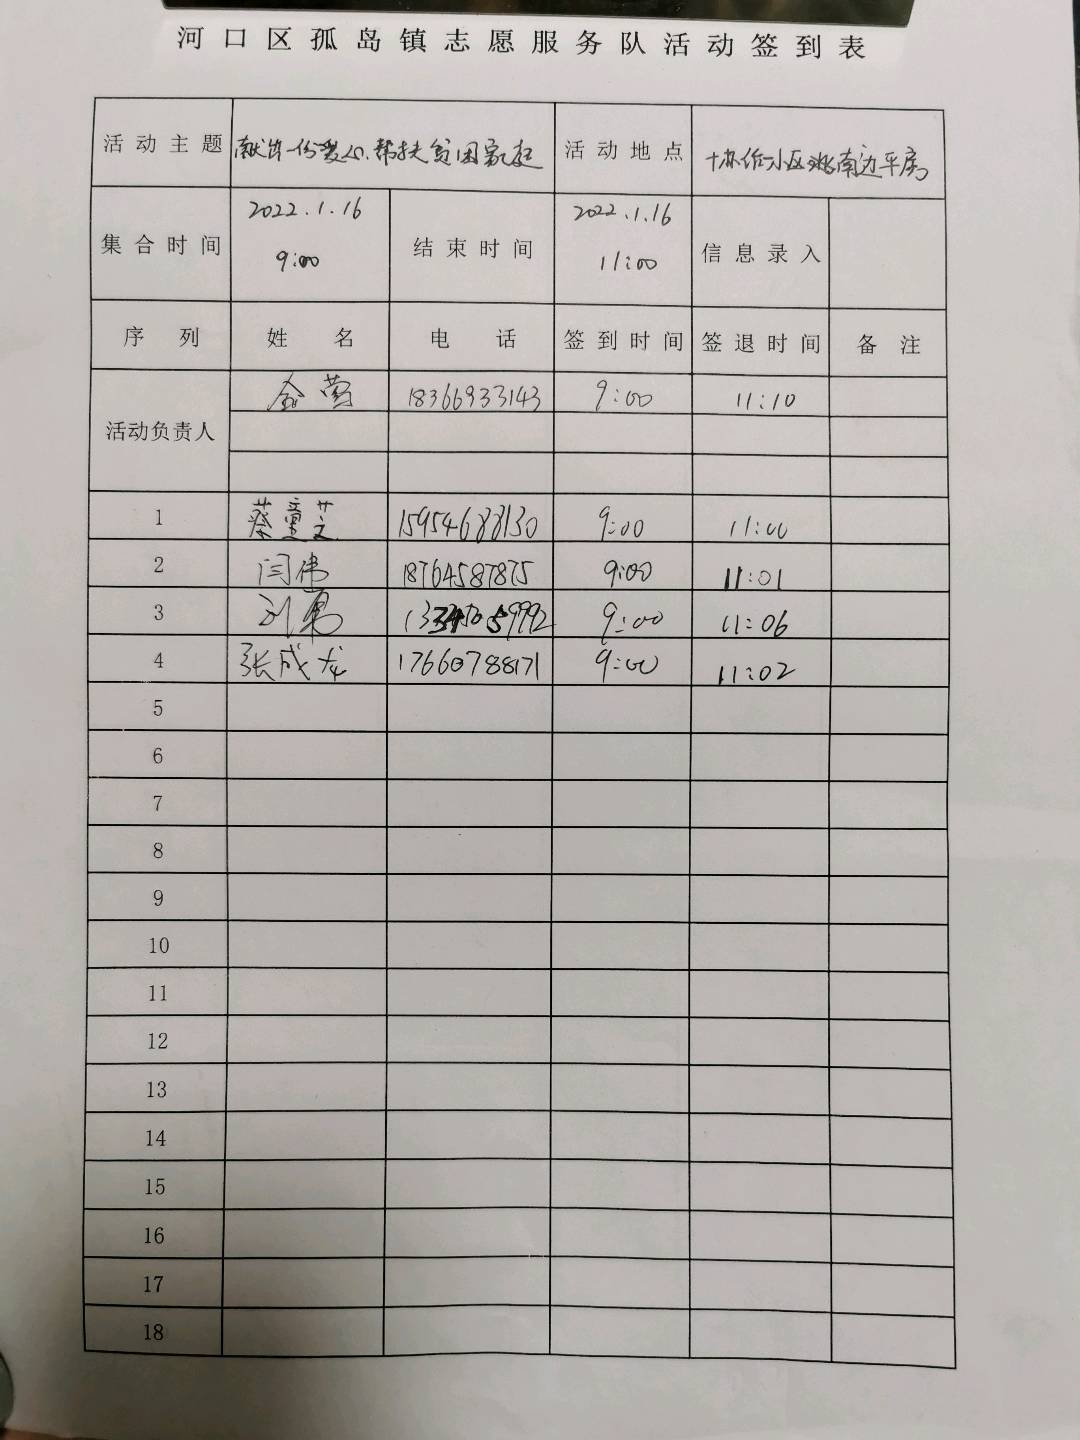 河口区孤岛镇志愿服务队活动签到表
活动主题 献一份爱心、帮扶贫困家庭 活动地点 小区 南边平房
集合时间 2022.1.16 9:00 结束时间 2022.1.16 11:00 信息录入
序列 姓名 电话 签到时间 签退时间 备注
活动负责人 18366933143 9:00 11:10
1 蔡童芝 15954688130 9:00 11:00
2 闫伟 18764587875 9:00 11:01
3 刘勇 9:00 11:06
4 张成龙 17660788171 9:00 11:02
5
6
7
8
9
10
11
12
13
14
15
16
17
18